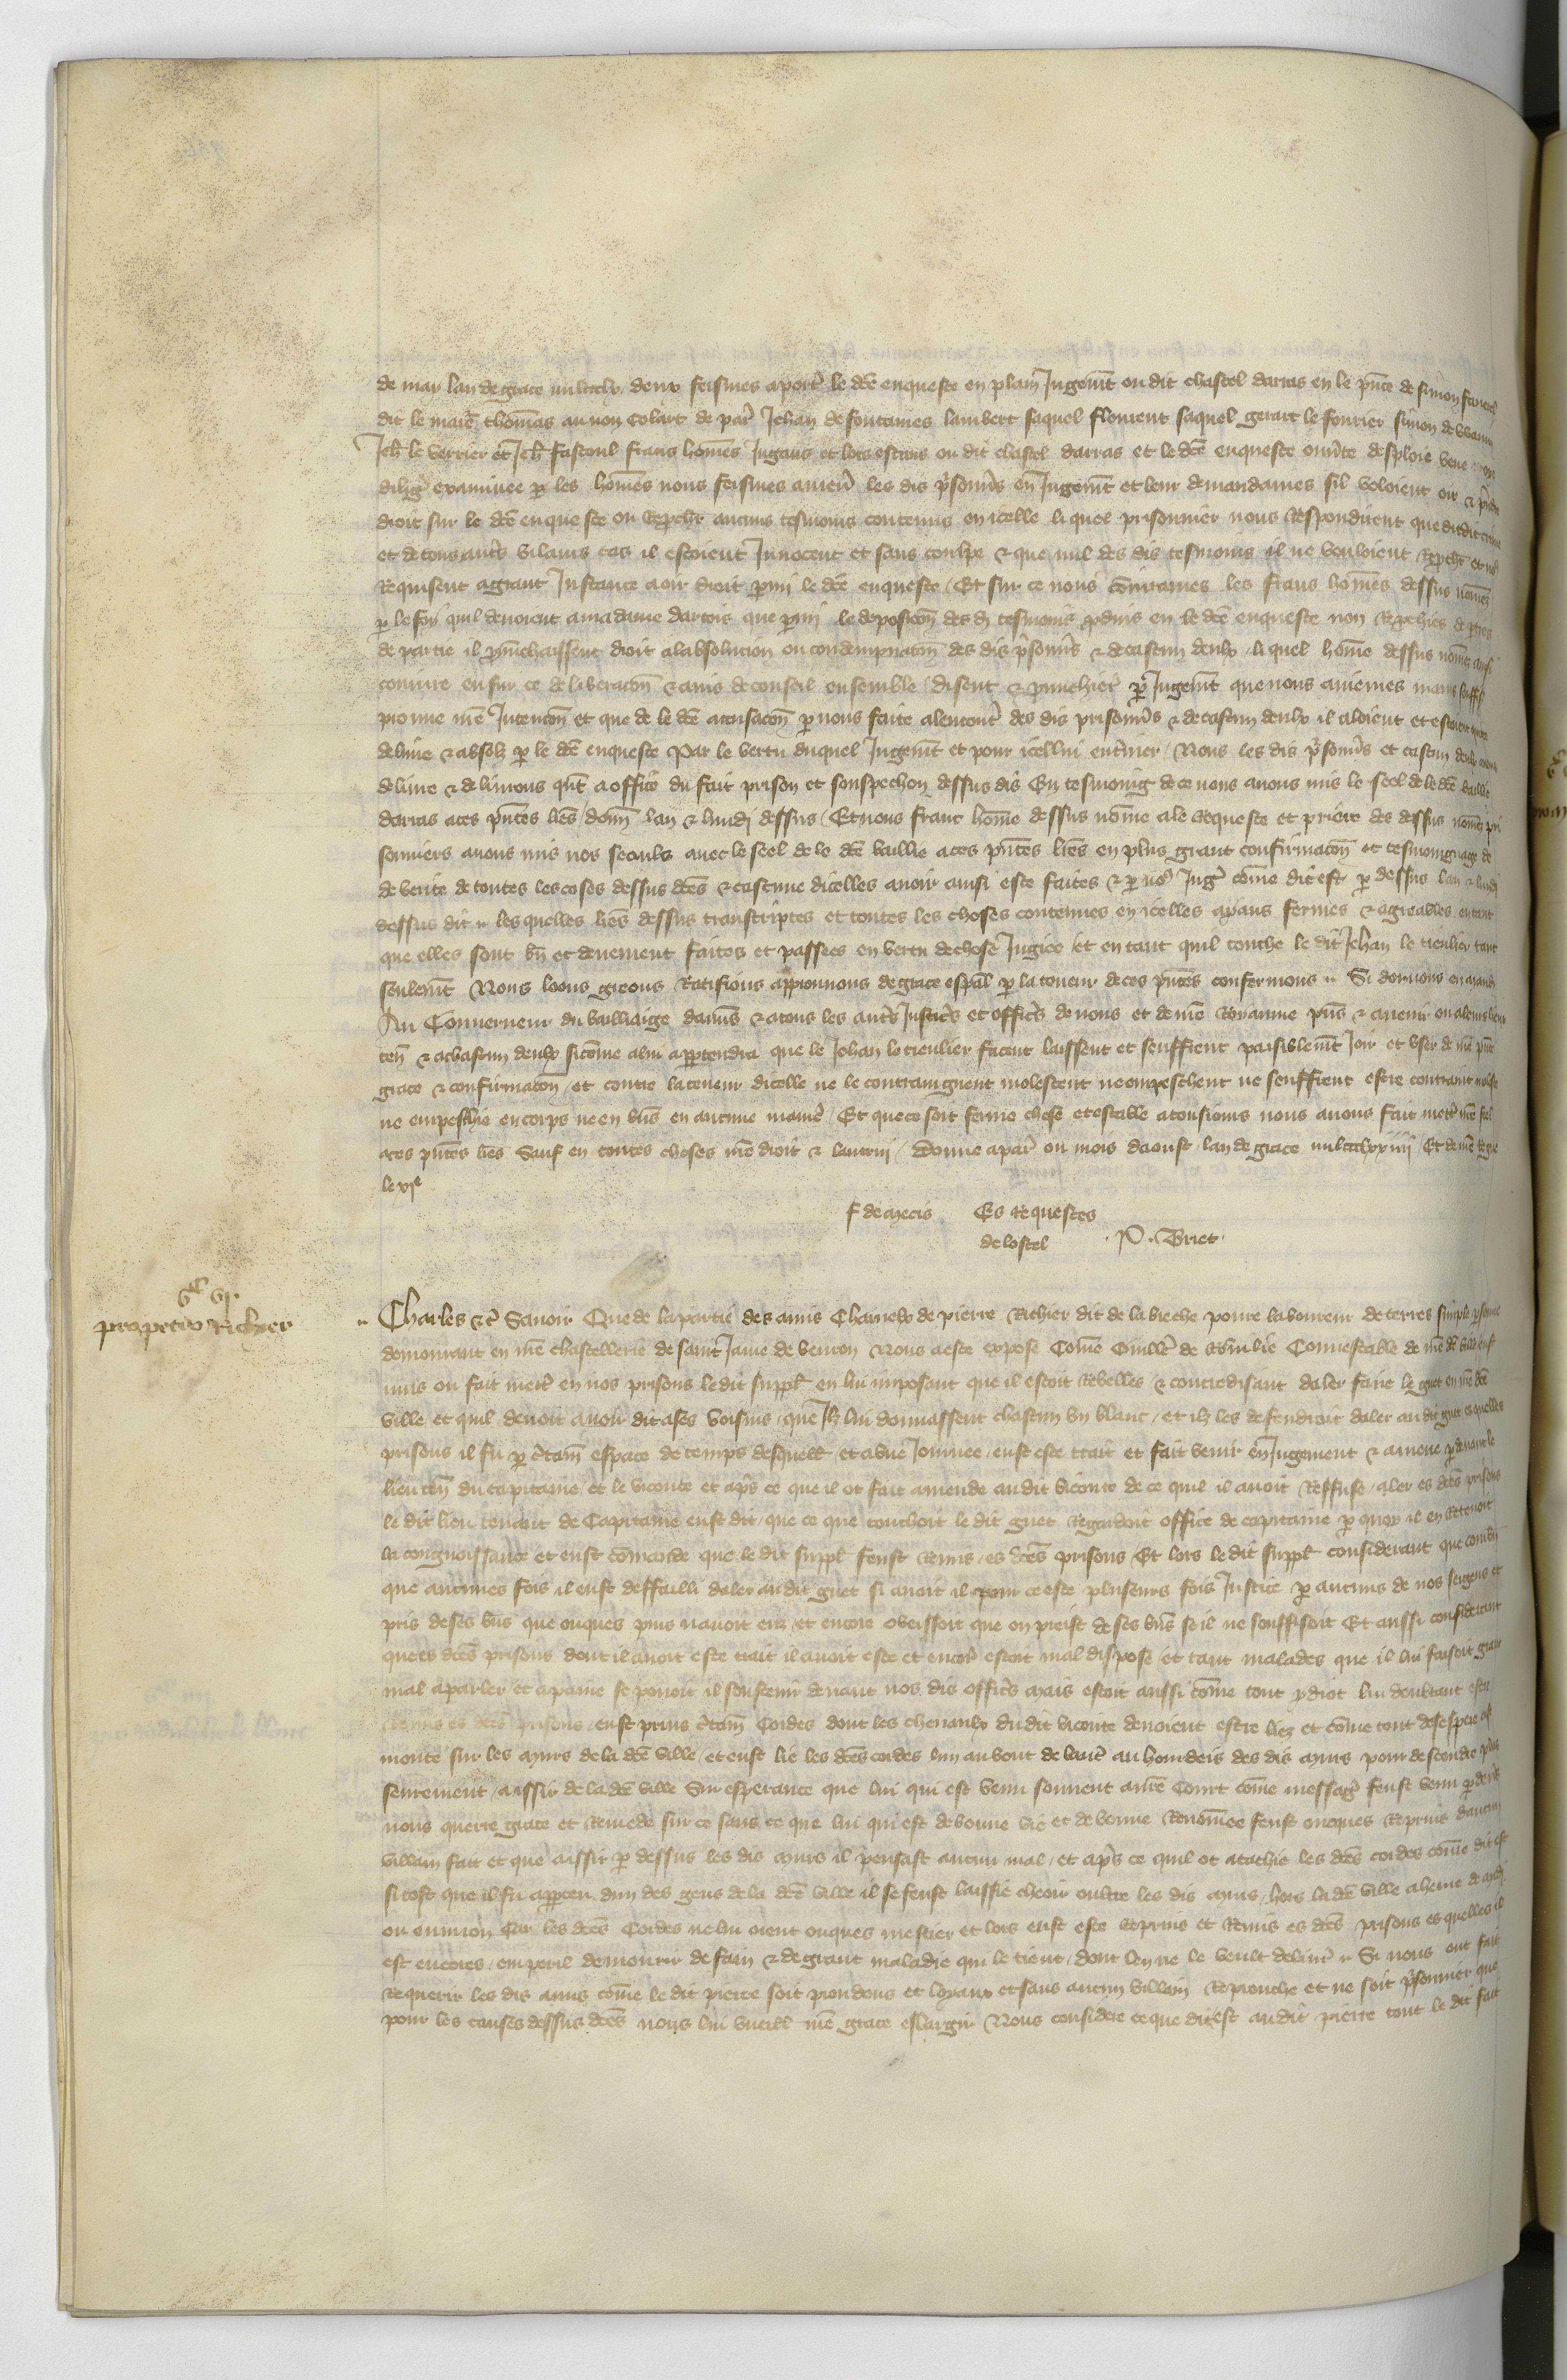 de may lan de grace mil ccclx deux feismes aporter le dce enqueste en plain Jugemt ou dit chastel darras en le pnce de simon
dit le maire thommas au non colart de par Jehan de fontaines lambert saquel florent saquel gerart le fourier simon de
Jeh le verrier et Jeh fastoul frans hommes Jugans et lors estans ou dit chastel darras et le dce enqueste ouvte desploie veue
diligr examinee p les hommes nous feismes amenr les dis psonnrs en Jugemt et leur demandames sil voloient oir &
droit sur le dce enqueste ou repchr aucuns tesmoins contenus en icelle liquel prisonnier nous respondirent que dudit
et de tous autrs vilains cas il estoient Innocent et sans coulpe & que nul des dis tesmoins il ne vouloient repchr et
requisent a grant Instance avoir droit pmi le dce enqueste / Et sur ce nous conjurames les frans hommes dessus nommez
p le foy quil devoient a madame dartois que pmi le deposicon des d tesmoins pduis en le dce enqueste non repchies de
de partie il pnunchaissent droit a labsolucion ou condempnacon des dis psonnrs & de cascun deulx / liquel homme dessus nommez
conjure eu sur ce deliberacon & avis de conseil ensemble / disent & pnunchier p Jugemt que nous aviemes mains
prouve nre Intencon et que de le dce accusacon p nous faite alencontr des dis prisonnrs & de cascun deulx il aloient et estoient
delivre & absolz p le dce enqueste Par le vertu duquel Jugemt et pour icellui entrner / Nous les dis psonnrs et cascun deulx
delivre & delivrons qnt a office du fait prison et souspechon dessus dis En tesmoing de ce nous avons mis le seel de le dce baillie
darras a ces pntes lres / donn lan & lundj dessus / Et nous franc homme dessus nomme a le requeste et priere des dessus nommez pri
sonniers avons mis nos seeaulx avec le seel de le dce baillie a ces pntes lres en plus grant confirmacon et tesmoingnage de
de verite de toutes les coses dessus dces & cascune dicelles avoir ainsi este faites & p nos Jugr comme dit est p dessus lan & lundj
dessus dit // les quelles lres dessus transcriptes et toutes les choses contenues en icelles ayans fermes & agreables en tant
que elles sont bn et deuement faites et passees en vertu de chose Jugiee et en tant quil touche le dit Jehan le tieulier tant
seulemt Nous loons greons Ratifions approuvons de grace espal p la teneur de ces pntes confermons // Si donnons en mandt
Au Gouverneur du bailliaige darras & a tous les autrs Justicrs et officrs de nous et de nre Royaume pns & avenir ou a leurs lieux
ten & a chascun deulx sicomme a lui appartendra que le Jehan le tieulier facent laissent et seuffrent paisiblemt Joir et user de nre pnt
grace & confirmacon et contre la teneur dicelle ne le contraingnent molestent ne empeschent ne seuffrent estre contraint moleste
ne empeschie en corps ne en bns en aucune manier / Et que ce soit ferme chose et estable a tousjours nous avons fait mettr nre seel
a ces pntes lres Sauf en toutes choses nre droit & lautrui / Donne a par ou mois daoust lan de grace mil ccclxxiiii Et de nre regne
le xje
f de mecis Es Requestes
de lostel P. Briet.
VIc VI.
pro petro Richier
Charles &c Savoir Que de la partie des amis Charnelx de pierre Richier dit de la breche povre laboureur de terres simple psonne
demourant en nre chastellerie de saint Jame de beuron Nous a este expose Comme Guiller de Connestable de nre dce ville eust
mis ou fait mettr en nos prisons ledit suppl en lui imposant que il estoit rebelles & contredisant daler faire le guet en nre dce
ville et quil devoit avoir dit a ses voisins que Jlz lui donnassent chascun un blanc / et ilz les defendroit daler au dit guet es quelles
prisons il fu p ctain espace de temps desquell / et a une Journee / eust este trait et fait venir en Jugement & amene p devant le
lieu ten du capitaine / et le viconte et aprs ce que il ot fait amende audit viconte de ce quil il avoit Reffuse / aler es dces prisons
le dit lieu tenant de Capitaine eust dit / que ce que touchoit le dit guet regardoit office de capitaine p quoy il en retenoit
la congnoissance et eust commande que le dit suppl feust remis / es dces prisons Et lors ledit suppl considerant que combn
que aucunes fois il eust deffailli daler audit guet si avoit il pour ce este pluseurs fois Justicie p aucuns de nos sergens et
pris de ses bns que onques puis navoit euz / et encore obeissoit que on preist de ses bns se il ne souffisoit Et aussi considerant
que es dces prisons dont il avoit este trait il avoit este et encor estoit mal dispose / et tant malades que il lui faisoit grant
mal a parler et a paine se povoit il soustenir devant nos dis officrs mais estoit aussi comme tout ydiot lui doubtant estre
remis es dces prisons / eust prins ctain Cordes dont les chevaulx dudit viconte devoient estre liez et comme tout desespere
monte sur les murs de la dce ville / et eust lie les dces cordes lun au bout de lautr au hourdeis des dis murs pour descendre plus
seurement / a issir de la dce ville Sur esperance que lui qui est venu souvent a nre Court comme messagr feust venu p devs
nous querre grace et Remede sur ce sans ce que lui qui est de bonne vie et de bonne Renommee feust oncques Reprins daucun
villain fait et que a issir p dessus les dis murs il pensast aucun mal / et aprs ce quil ot atachie les dces cordes comme dit est
si tost que il fu apperceu dun des gens de la dce ville il se feust laissie cheoir oultre les dis murs / hors la dce ville a heure de
ou environ Car les dces Cordes ne lui orent onques mestier et lors eust este reprins et Remis es dces prisons es quelles il
est encores / en peril de mourir de fain & de grant maladie qui le tient / dont len ne le veult delivrer // Si nous ont fait
requerir les dis amis comme le dit pierre soit preudoms et loyaux et sans aucun villain Reprouche et ne soit psonnier que
pour les causes dessus dces nous lui vueill nre grace eslargir Nous considere ce que dit est audit pierre tout le dit fait